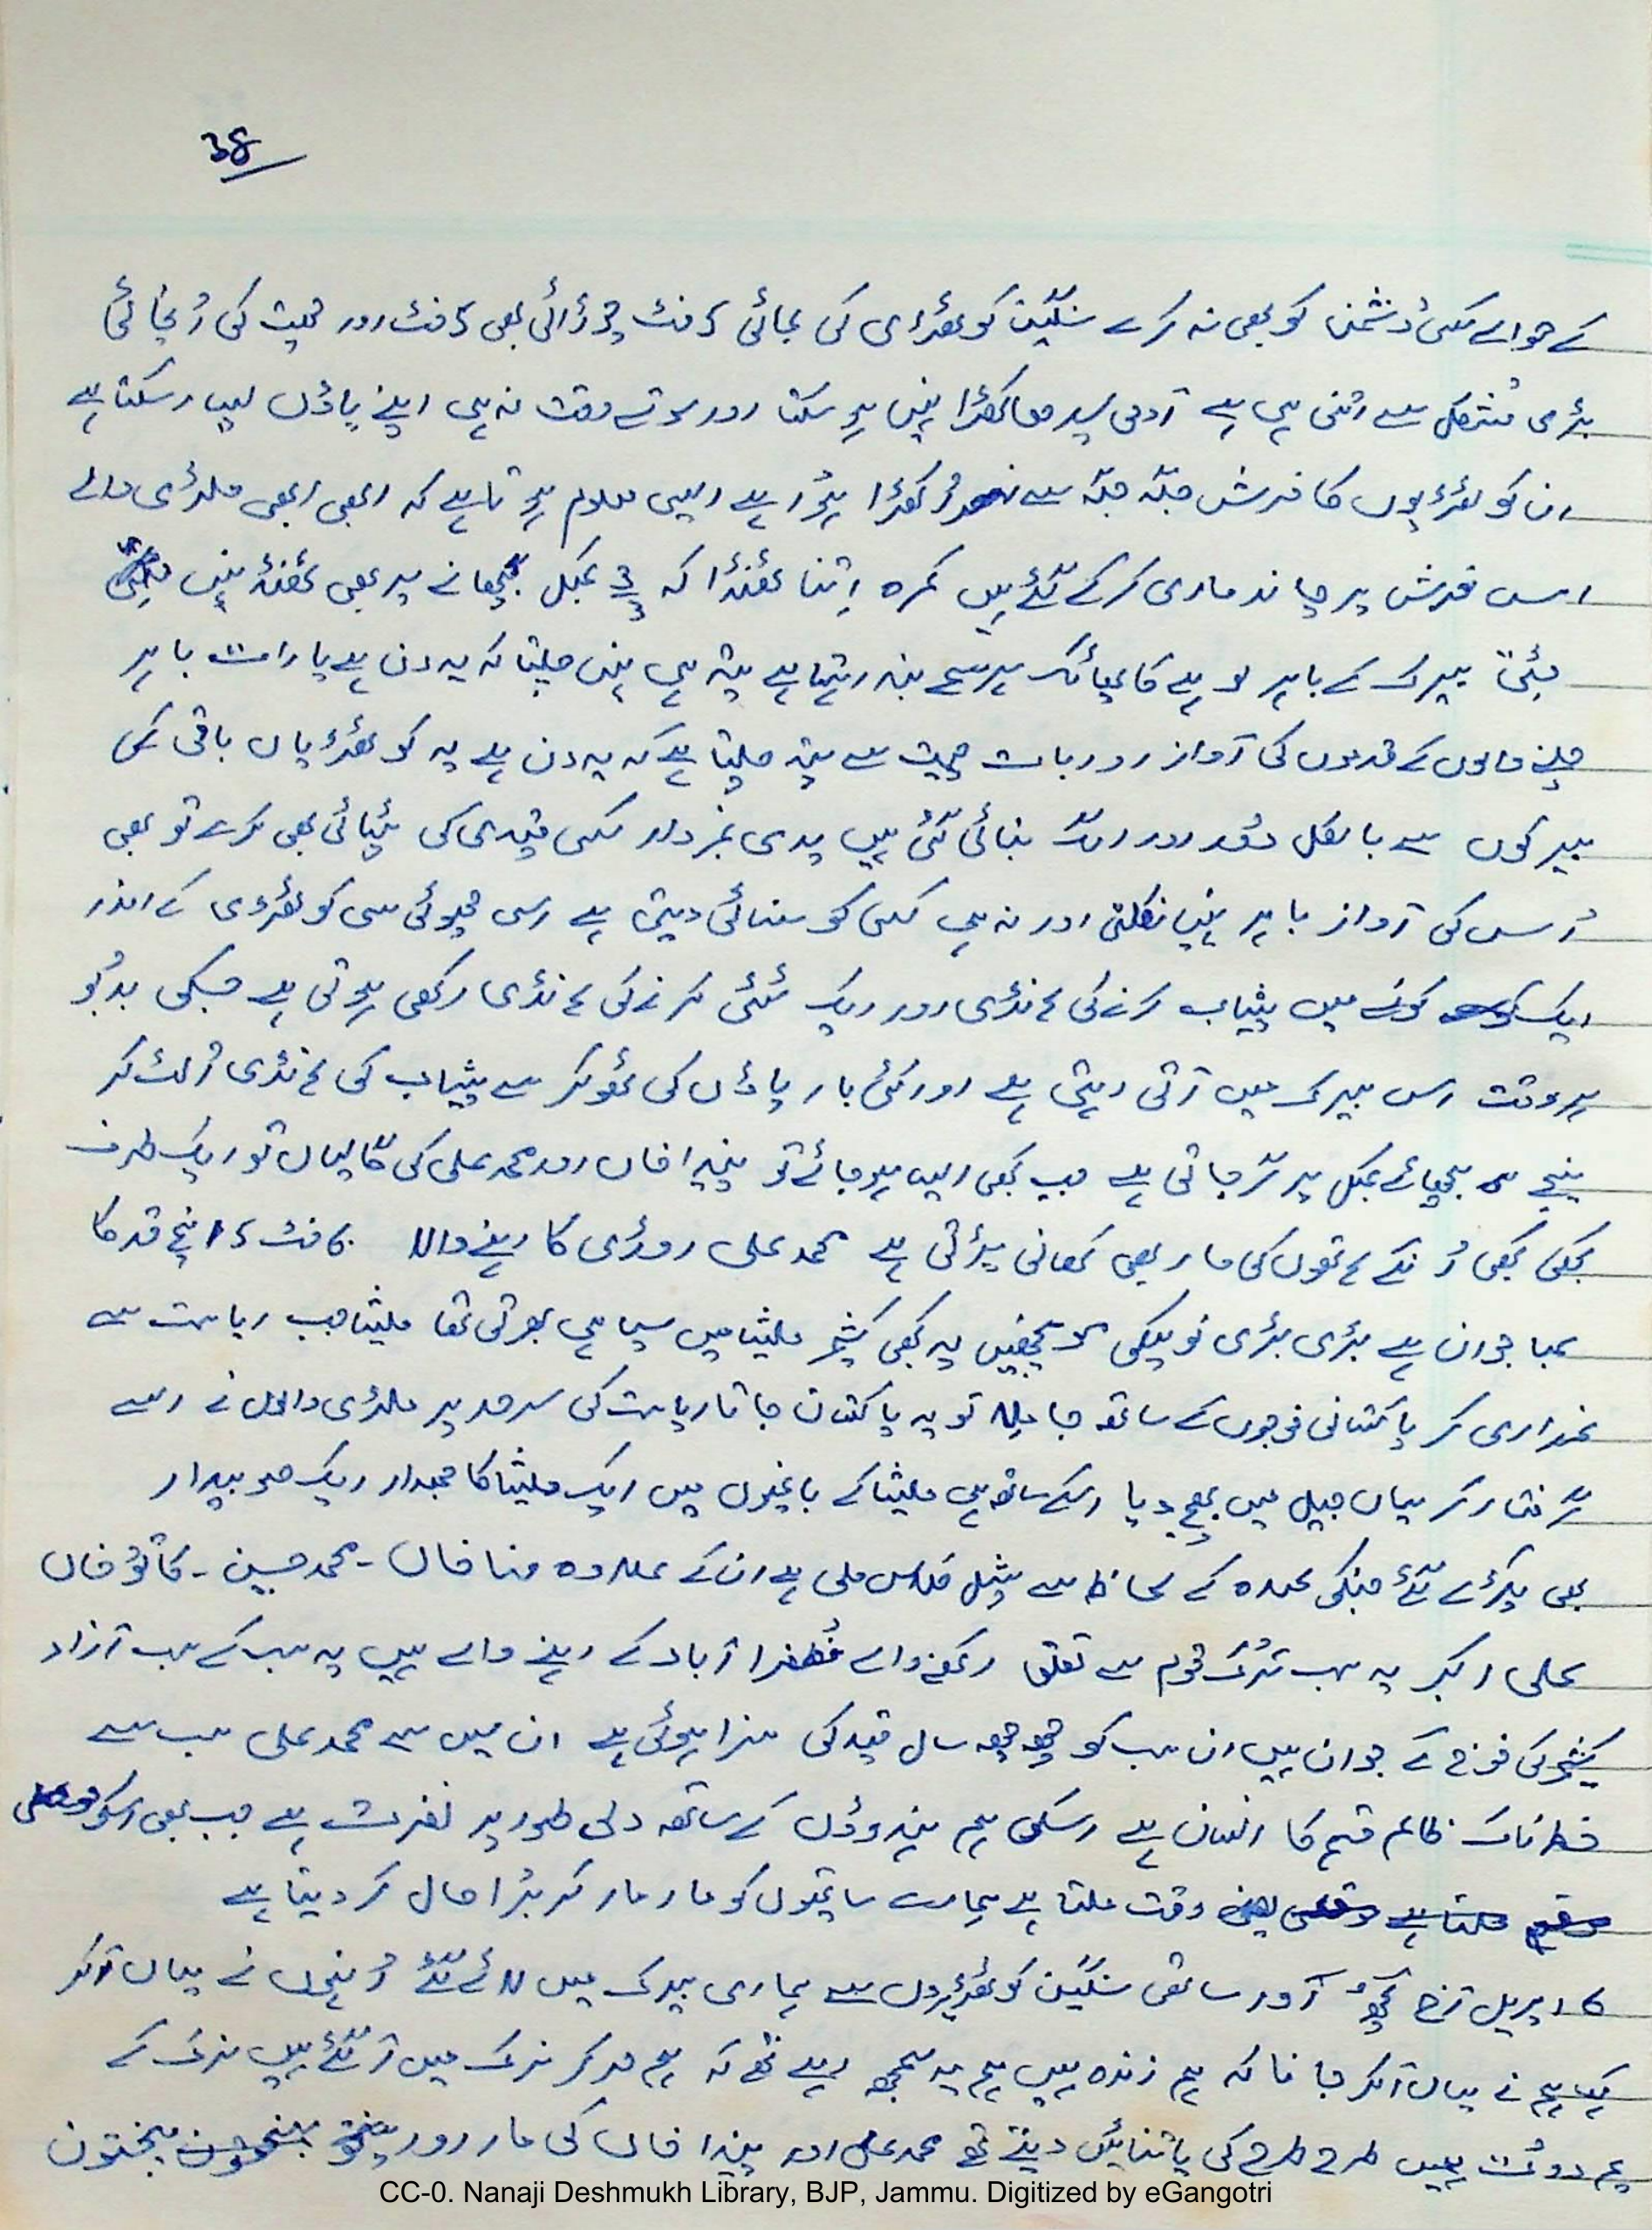 38
کے حوالے کسی دُشمن کو بھی نہ کرے سنگین کوٹھڑی کی لمبائی 5 فٹ چوڑائی بھی 5 فٹ اور چھت کی اُنچائی
بڑی مُشکل سے اتنی ہی ہے آدمی سیدھا کھڑا نہیں ہو سکتا اور سوتے وقت نہ ہی اپنے پاؤں پسار سکتا ہے
ان کوٹھڑیوں کا فرش جگہ جگہ سے اُکھڑا ہؤا ہے ایسی معلوم ہوتا ہے کہ ابھی ابھی ملٹری والے
اس فرش پر چاند ماری کر کے گئے ہیں کمرہ اِتنا ٹھنڈا کہ 3 3 کمبل بچھانے پر بھی ٹھنڈ نہیں
بیرک کے باہر لوہے کا پھاٹک ہر سمے بند رہتا ہے پتہ ہی نہیں چلتا کہ یہ دن ہے یا رات باہر
چلنے والوں کے قدموں کی آواز اور بات چیت سے پتہ چلتا ہے کہ یہ دن ہے یہ کوٹھڑیاں باقی کی
بیرکوں سے بالکل دُور اور الگ بنائی گئی ہیں نمبردار کسی قیدی کی پٹائی بھی کرے تو بھی
اُس کی آواز باہر نہیں نکلتی اور نہ ہی کسی کو سنائی دیتی ہے اِسی چھوٹی سی کوٹھڑی کے اندر
ایک کونے میں پیشاب کرنے کی ہانڈی اور ایک ٹٹی کرنے کی ہانڈی رکھی ہوتی ہے جسکی بدبُو
ہر وقت اس بیرک میں آتی رہتی ہے اور کئی بار پاؤں کی ٹھوکر سے پیشاب کی ہانڈی اُلٹ کر
نیچے بچھائے کمبل پر گر جاتی ہے جب کبھی ایسا ہو جائے تو پنیدا خاں اور محمد علی کی گالیاں تو ایک طرف
کبھی کبھی اُنکے ہاتھوں کی مار بھی کھانی پڑتی ہے محمد علی روڑی کا رہنے والا 6 فٹ 5 انچ قد کا
لمبا جوان ہے بڑی بڑی نوکیلی مونچھیں یہ کبھی کشمیر ملیشا میں سپاہی بھرتی تھا ملیشا جب ریاست سے
غداری کر پاکستانی فوجوں کے ساتھ جا مِلا تو یہ پاکستان جاتا ریاست کی سرحد پر ملٹری والوں نے اسے
گرفتار کر یہاں جیل میں بھیج دیا اسکے ساتھ ہی ملیشا کے باغیوں میں ایک ملیشا کا جمعدار ایک صوبیدار
بھی پکڑے گئے جنکی عہدہ کے لحاظ سے سپیشل کلاس ملی ہے ان کے علاوہ منا خاں - محمد حسین - کالو خاں
علی اکبر یہ سب تُرک قوم سے تعلق رکھنے والے مُظفرا آباد کے رہنے والے ہیں یہ سب کے سب آزاد
کشمیر کی فوج کے جوان ہیں ان سب کو چھ چھ سال قید کی سزا ہوئی ہے ان میں سے محمد علی سب سے
خطرناک ظالم قسم کا انسان ہے اسکی ہم ہندوؤں کے ساتھ دلی طور پر نفرت ہے جب بھی اسکو
وقت ملتا ہے ہمارے ساتھیوں کو مار مار کر بُرا حال کر دیتا ہے
6 اپریل آج کُچھ اور ساتھی سنگین کوٹھڑیوں سے ہماری بیرک میں لائے گئے اُنہوں نے یہاں آکر
کہا ہم نے یہاں آکر جانا کہ ہم زندہ ہیں ہم یہ سمجھ رہے تھے کہ ہم مر کر نرک میں آ گئے ہیں نرک کے
یم دوت ہمیں طرح طرح کی یاتنائیں دیتے تھے محمد علی اور پنیدا خاں کی مار اور پختون
CC-0. Nanaji Deshmukh Library, BJP, Jammu. Digitized by eGangotri